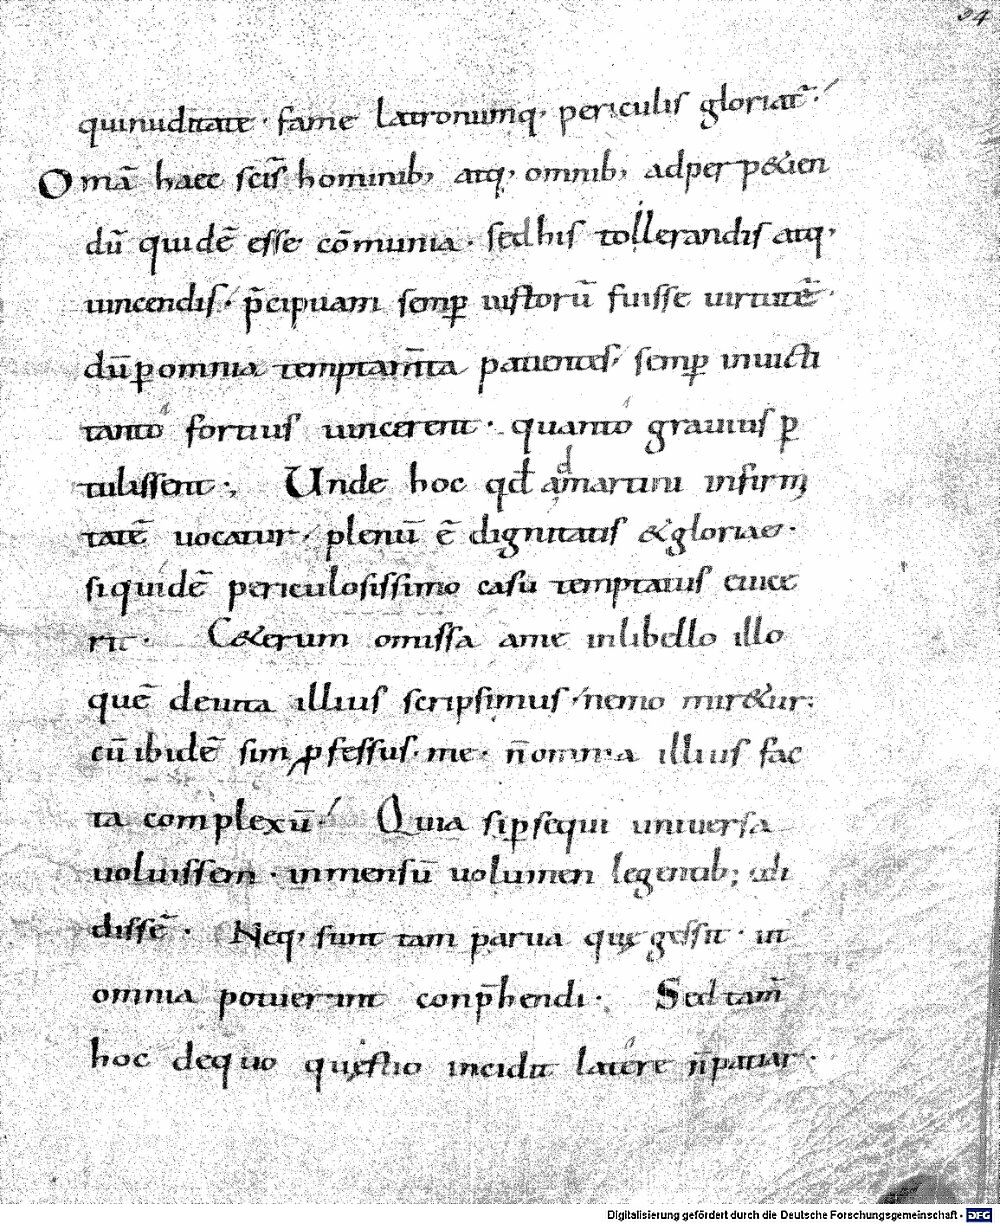 94
quinuditate · fame latronumq; periculis gloriat̄ :
Omā haec scīs hominib; atq; omnib; adper p&ien
dū quidē esse cōmunia · sed his tollerandis atq;
uincendis · p̄cipuam semꝑ iustorū fuisse uirtutē ·
dū ꝑ omnia temptam̄ta patientes semꝑ inuicti
tanto fortius uincerent · quanto grauius ꝑ
tulissent · Unde hoc qđ amartini infirmi
tatē uocatur · plenū ē dignitatis & gloriae ·
siquidē periculosissimo casu temptatus euice
rit · C&erum omissa ame inlibello illo
quē deuita illius scripsimus · nemo mir&ur :
cū ibidē sim ꝓfessus · me · n̄ omnia illius fac
ta complexū · Quia si ꝑsequi uniuersa
uoluissem · inmensū uolumen legentib; edi
dissē · Neq; sunt tam parua quę gessit · ut
omnia potuerint conp̄hendi · Sed tam̄
hoc dequo quęstio incidit latere n̄ patiar ·
Digitalisierung gefördert durch die Deutsche Forschungsgemeinschaft - DFG